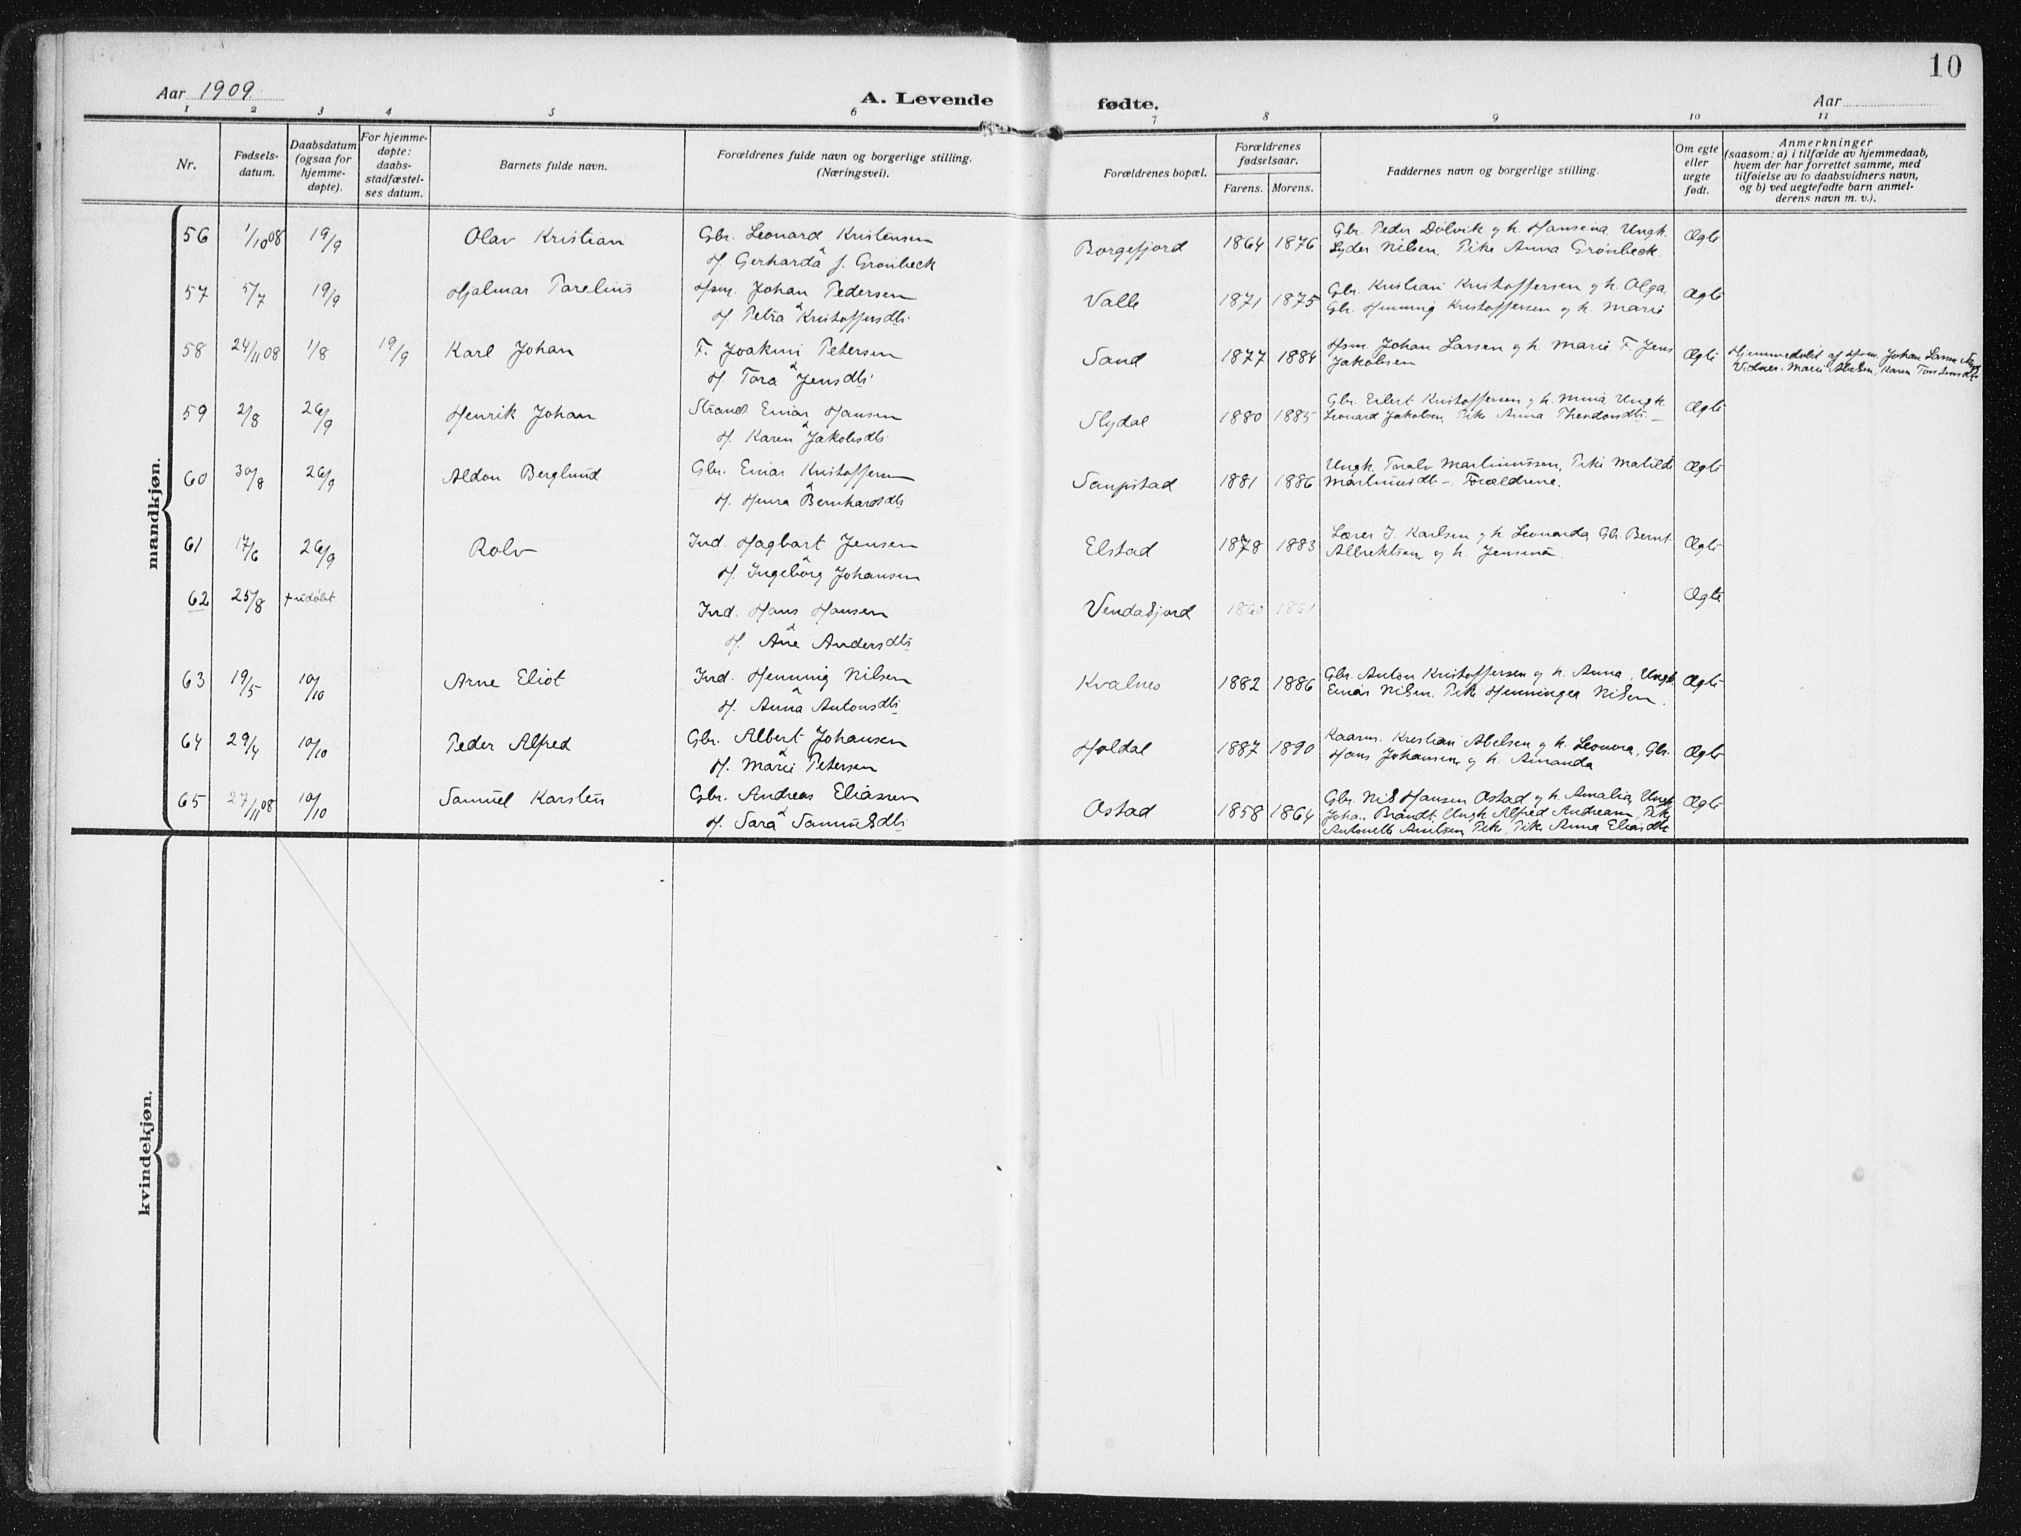 10
Aar 1909
A. Levende fødte.
Aar
1 2 3 4 5 6 7 8 9 10 11
Nr.
Fødsels-
datum.
Daabsdatum
(ogsaa for
hjemme-
døpte).
For hjemme-
døpte:
daabs-
stadfæstel-
ses datum.
Barnets fulde navn.
Forældrenes fulde navn og borgerlige stilling.
(Næringsvei).
Forældrenes bopæl.
Forældrenes
fødselsaar.
Farens. Morens.
Faddernes navn og borgerlige stilling.
Om egte
eller
uegte
født.
Anmerkninger
(saasom: a) i tilfælde av hjemmedaab,
hvem der har forrettet samme, med
tilføielse av to daabsvidners navn,
og b) ved uegtefødte barn anmel-
derens navn m. v.).
mandkjøn.
56 1/10 08 19/9 Olav Kristian Gbr. Leonard Kristensen
H. Gerharda f. Grønbeck
Borgefjord 1864 1876
Gbr. Peder Dolvik og h. Hansena, Ungk.
Lyder Nilsen, Pike Anna Grønbeck.
Ægte
57 5/7 19/9 Hjalmar Parelius Hsm. Johan Pedersen
H. Petra Kristoffersdtr
Valle 1871 1875
Gbr. Kristian Kristoffersen og h. Olga,
Gbr. Henning Kristoffersen og h. Marie
Ægte
58 24/11 08 1/8 19/9 Karl Johan F. Joakim Petersen
H. Tora Jensdtr
Sand 1877 1884
Hsm. Johan Larsen og h. Marie F. Jens
Jakobsen
Ægte
Hjemmedøbt af Hsm. Johan Larsen
Vidner: Marie Abelsen, Karen
59 2/8 26/9 Henrik Johan Strands. Einar Hansen
H. Karen Jakobsdtr
Slydal 1880 1885
Gbr. Edert Kristoffersen og h. Mina Ungk.
Leonard Jakobsen, Pike Anna Theodorsdtr
Ægte
60 30/8 26/9 Aldon Berglund Gbr. Einar Kristoffersen
H. Henra Bernhardsdtr
Saupstad 1881 1886
Ungk. Toralv Martinussen, Pike Matilde
Martinusdtr – Forældrene.
Ægte
61 17/6 26/9 Rolv Ind. Hagbart Jensen
H. Ingebórg Johansen
Elstad 1878 1883
Lærer J. Karlsen og h. Leonarda, Gbr. Bernt
Albrektsen og h. Jensina.
Ægte
62 25/8 + udøbt Ind. Hans Hansen
H. Ane Andersdtr
Vendasjord 1860 1861
Ægte
63 19/5 10/10 Arne Eliot Ind. Henning Nilsen
H. Anna Antonsdtr
Kvalnes 1882 1886
Gbr. Anton Kristoffersen og h. Anna, Ungk.
Einar Nilsen, Pike Henninga Nilsen.
Ægte
64 29/4 10/10 Peder Alfred Gbr. Albert Johansen
H. Marie Petersen
Holdal 1887 1890
Kaarm. Kristian Abelsen og h. Leonora, Gbr.
Hans Johansen og h. Amanda
Ægte
65 27/11 08 10/10 Samuel Karstein Gbr. Andreas Eliassen
H. Sara Samuelsdtr
Ostad 1858 1864
Gbr. Nils Hansen Ostad og h. Amalia, Ungk.
Johan Brandt, Ungk. Alfred Andreassen, Pike
Antonette Anielsen, Pike Anna Eliasdtr
Ægte
kvindekjøn.